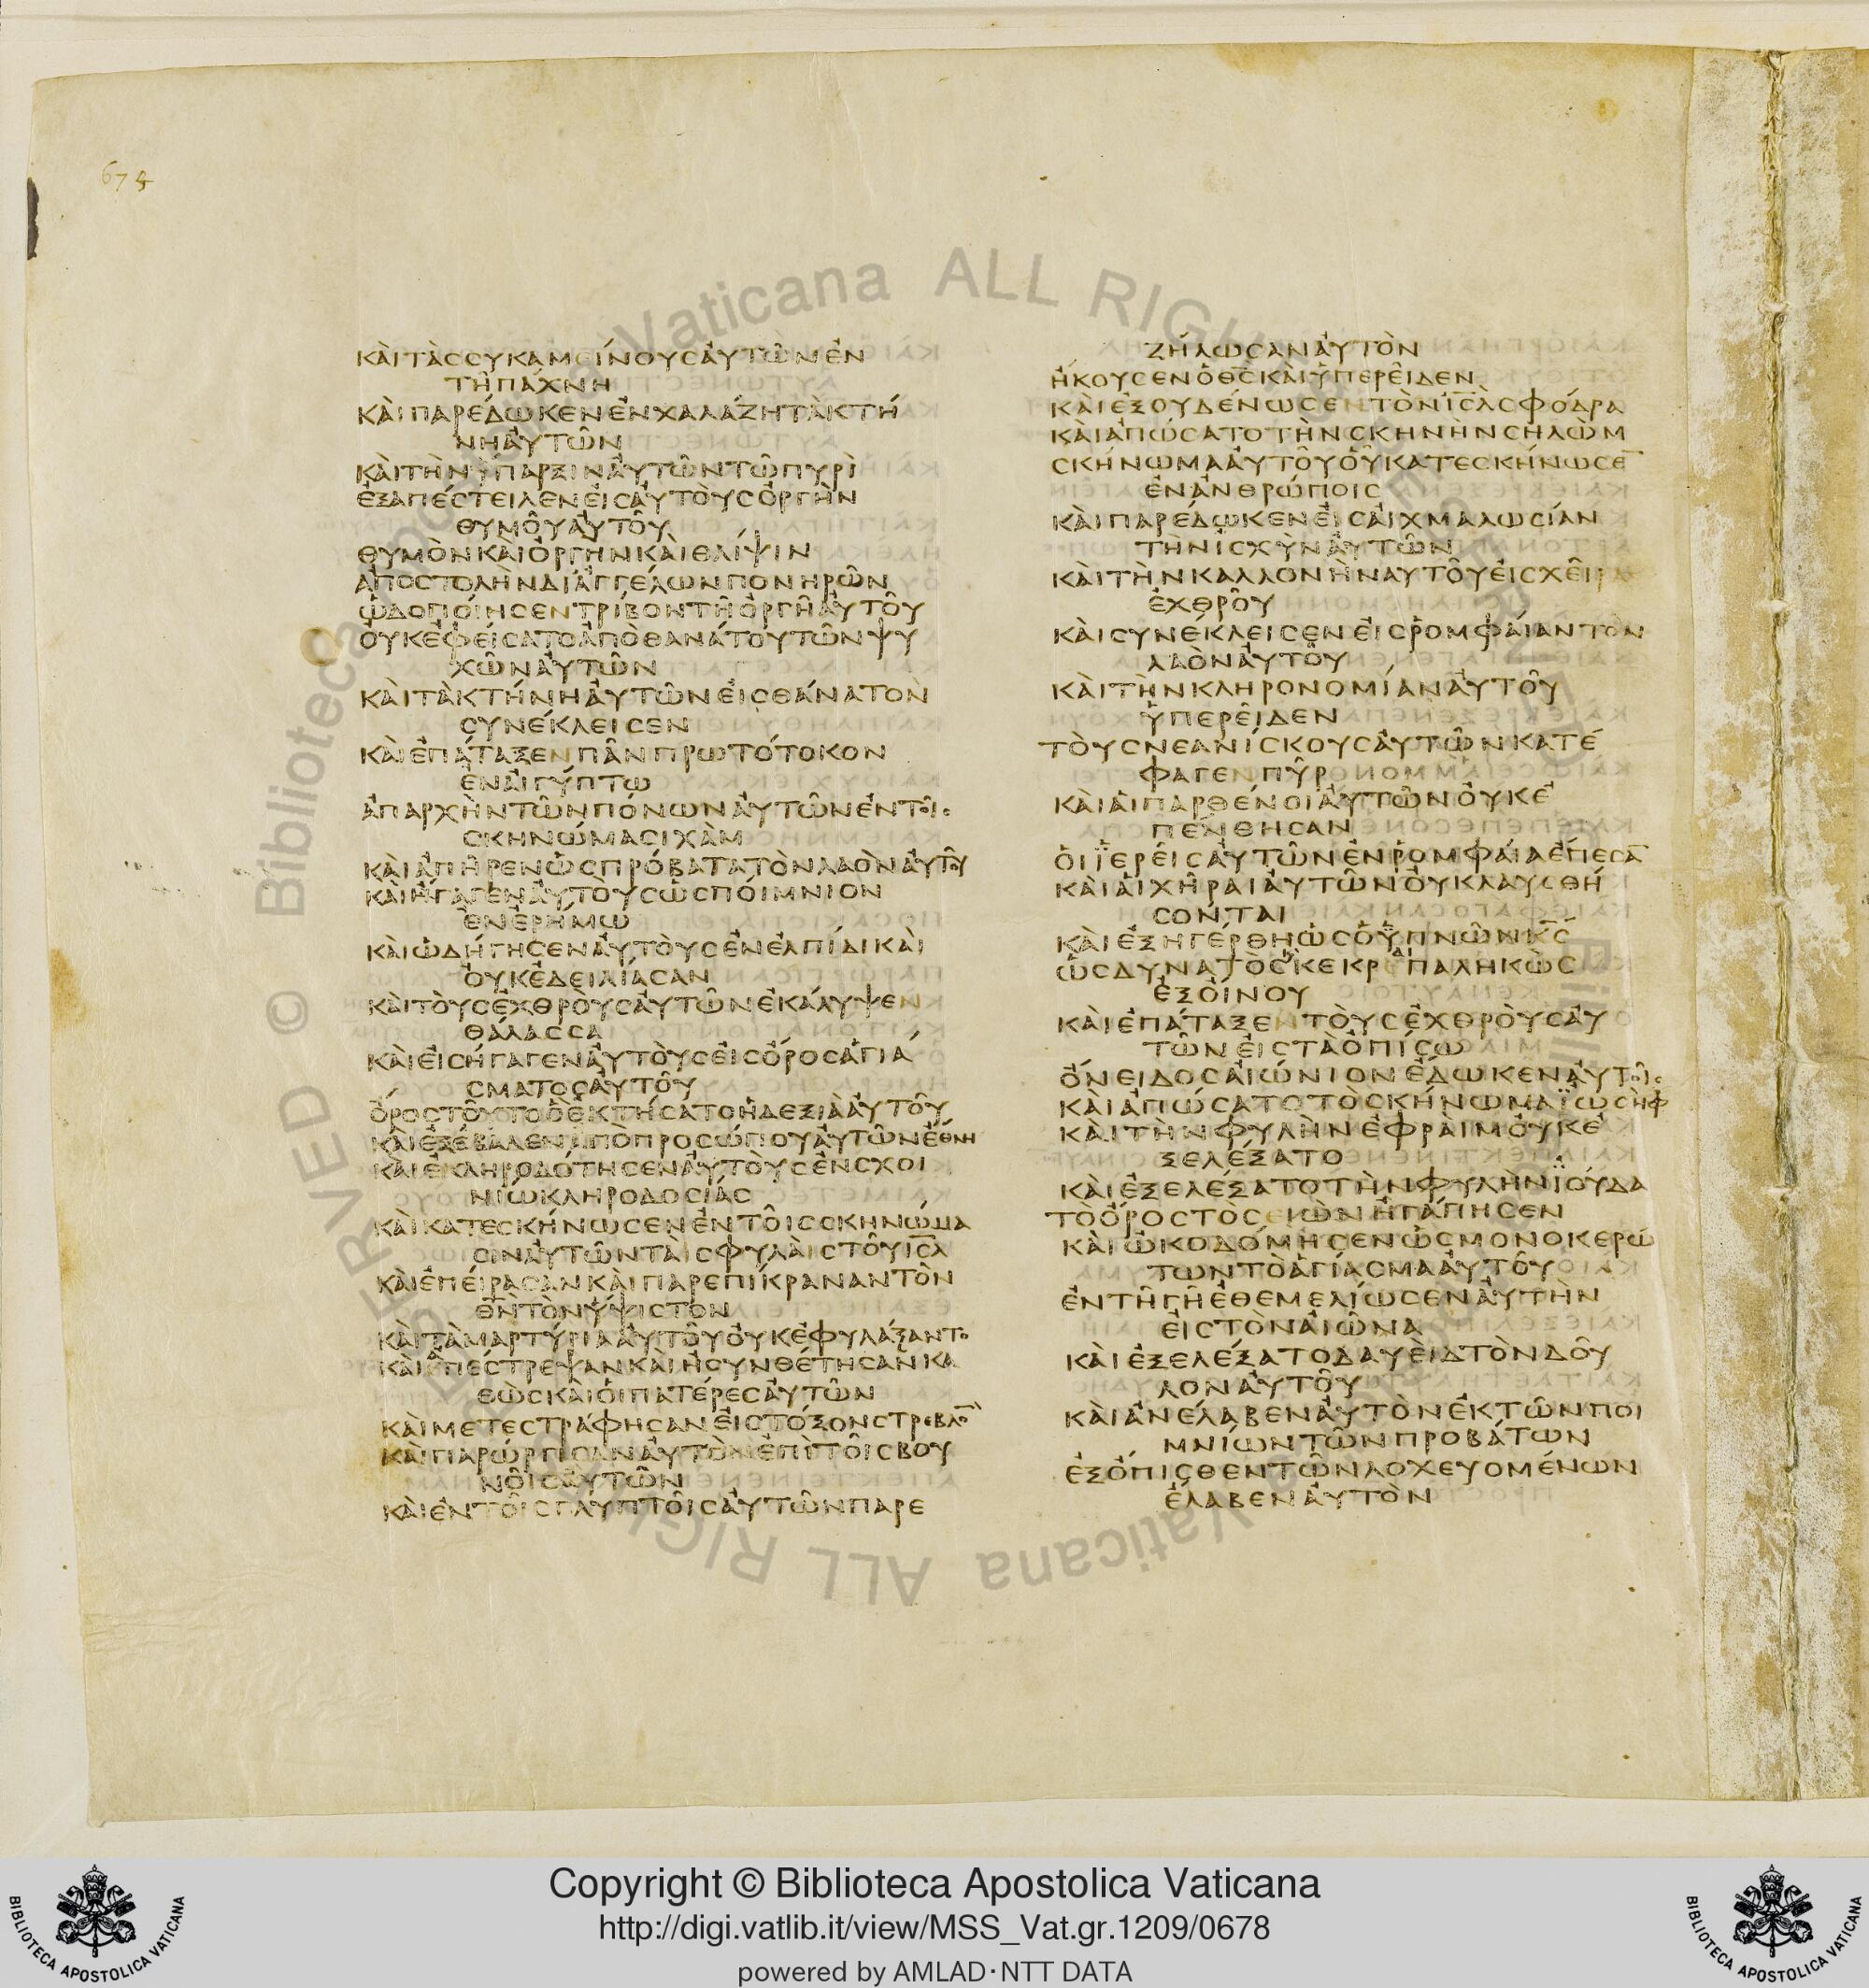 674
ΚΑΙΤΑΣΣΥΚΑΜΕΙΝΟΥΣΑΥΤΩΝΕΝ
ΤΗΠΑΧΝΗ
ΚΑΙΠΑΡΕΔΩΚΕΝΕΝΧΑΛΑΖΗΤΑΚΤΗ
ΝΗΑΥΤΩΝ
ΚΑΙΤΗΝΥΠΑΡΞΙΝΑΥΤΩΝΤΩΠΥΡΙ
ΕΞΑΠΕΣΤΕΙΛΕΝΕΙΣΑΥΤΟΥΣΟΡΓΗΝ
ΘΥΜΟΥΑΥΤΟΥ
ΘΥΜΟΝΚΑΙΟΡΓΗΝΚΑΙΘΛΙΨΙΝ
ΑΠΟΣΤΟΛΗΝΔΙΑΓΓΕΛΩΝΠΟΝΗΡΩΝ
ΩΔΟΠΟΙΗΣΕΝΤΡΙΒΟΝΤΗΟΡΓΗΑΥΤΟΥ
ΟΥΚΕΦΕΙΣΑΤΟΑΠΟΘΑΝΑΤΟΥΤΩΝΨΥ
ΧΩΝΑΥΤΩΝ
ΚΑΙΤΑΚΤΗΝΗΑΥΤΩΝΕΙΣΘΑΝΑΤΟΝ
ΣΥΝΕΚΛΕΙΣΕΝ
ΚΑΙΕΠΑΤΑΞΕΝΠΑΝΠΡΩΤΟΤΟΚΟΝ
ΕΝΑΙΓΥΠΤΩ
ΑΠΑΡΧΗΝΤΩΝΠΟΝΩΝΑΥΤΩΝΕΝΤΟΙΣ
ΣΚΗΝΩΜΑΣΙΧΑΜ
ΚΑΙΑΠΗΡΕΝΩΣΠΡΟΒΑΤΑΤΟΝΛΑΟΝΑΥΤΟΥ
ΚΑΙΗΓΑΓΕΝΑΥΤΟΥΣΩΣΠΟΙΜΝΙΟΝ
ΕΝΕΡΗΜΩ
ΚΑΙΩΔΗΓΗΣΕΝΑΥΤΟΥΣΕΝΕΛΠΙΔΙΚΑΙ
ΟΥΚΕΔΕΙΛΙΑΣΑΝ
ΚΑΙΤΟΥΣΕΧΘΡΟΥΣΑΥΤΩΝΕΚΑΛΥΨΕΝ
ΘΑΛΑΣΣΑ
ΚΑΙΕΙΣΗΓΑΓΕΝΑΥΤΟΥΣΕΙΣΟΡΟΣΑΓΙΑ
ΣΜΑΤΟΣΑΥΤΟΥ
ΟΡΟΣΤΟΥΤΟΟΕΚΤΗΣΑΤΟΗΔΕΞΙΑΑΥΤΟΥ
ΚΑΙΕΞΕΒΑΛΕΝΑΠΟΠΡΟΣΩΠΟΥΑΥΤΩΝΕΘΝΗ
ΚΑΙΕΚΛΗΡΟΔΟΤΗΣΕΝΑΥΤΟΥΣΕΝΣΧΟΙ
ΝΙΩΚΛΗΡΟΔΟΣΙΑΣ
ΚΑΙΚΑΤΕΣΚΗΝΩΣΕΝΕΝΤΟΙΣΣΚΗΝΩΜΑ
ΣΙΝΑΥΤΩΝΤΑΙΣΦΥΛΑΙΣΤΟΥΙΣΛ
ΚΑΙΕΠΕΙΡΑΣΑΝΚΑΙΠΑΡΕΠΙΚΡΑΝΑΝΤΟΝ
ΘΝΤΟΝΥΨΙΣΤΟΝ
ΚΑΙΤΑΜΑΡΤΥΡΙΑΑΥΤΟΥΟΥΚΕΦΥΛΑΞΑΝΤΟ
ΚΑΙΑΠΕΣΤΡΕΨΑΝΚΑΙΗΣΥΝΘΕΤΗΣΑΝΚΑ
ΘΩΣΚΑΙΟΙΠΑΤΕΡΕΣΑΥΤΩΝ
ΚΑΙΜΕΤΕΣΤΡΑΦΗΣΑΝΕΙΣΤΟΞΟΝΣΤΡΕΒΛΟ
ΚΑΙΠΑΡΩΡΓΙΣΑΝΑΥΤΟΝΕΠΙΤΟΙΣΒΟΥ
ΝΟΙΣΑΥΤΩΝ
ΚΑΙΕΝΤΟΙΣΓΛΥΠΤΟΙΣΑΥΤΩΝΠΑΡΕ
ΖΗΛΩΣΑΝΑΥΤΟΝ
ΗΚΟΥΣΕΝΟΘΣΚΑΙΥΠΕΡΕΙΔΕΝ
ΚΑΙΕΞΟΥΔΕΝΩΣΕΝΤΟΝΙΣΛΣΦΟΔΡΑ
ΚΑΙΑΠΩΣΑΤΟΤΗΝΣΚΗΝΗΝΣΗΛΩΜ
ΣΚΗΝΩΜΑΑΥΤΟΥΟΥΚΑΤΕΣΚΗΝΩΣΕ
ΕΝΑΝΘΡΩΠΟΙΣ
ΚΑΙΠΑΡΕΔΩΚΕΝΕΙΣΑΙΧΜΑΛΩΣΙΑΝ
ΤΗΝΙΣΧΥΝΑΥΤΩΝ
ΚΑΙΤΗΝΚΑΛΛΟΝΗΝΑΥΤΟΥΕΙΣΧΕΙΡΑ
ΕΧΘΡΟΥ
ΚΑΙΣΥΝΕΚΛΕΙΣΕΝΕΙΣΡΟΜΦΑΙΑΝΤΟΝ
ΛΑΟΝΑΥΤΟΥ
ΚΑΙΤΗΝΚΛΗΡΟΝΟΜΙΑΝΑΥΤΟΥ
ΥΠΕΡΕΙΔΕΝ
ΤΟΥΣΝΕΑΝΙΣΚΟΥΣΑΥΤΩΝΚΑΤΕ
ΦΑΓΕΝΠΥΡ
ΚΑΙΑΙΠΑΡΘΕΝΟΙΑΥΤΩΝΟΥΚΕ
ΠΕΝΘΗΣΑΝ
ΟΙΪΕΡΕΙΣΑΥΤΩΝΕΝΡΟΜΦΑΙΑΕΠΕΣΑ
ΚΑΙΑΙΧΗΡΑΙΑΥΤΩΝΟΥΚΛΑΥΣΘΗ
ΣΟΝΤΑΙ
ΚΑΙΕΞΗΓΕΡΘΗΩΣΟΥΠΝΩΝΚΣ
ΩΣΔΥΝΑΤΟΣΚΕΚΡΑΙΠΑΛΗΚΩΣ
ΕΞΟΙΝΟΥ
ΚΑΙΕΠΑΤΑΞΕΝΤΟΥΣΕΧΘΡΟΥΣΑΥ
ΤΩΝΕΙΣΤΑΟΠΙΣΩ
ΟΝΕΙΔΟΣΑΙΩΝΙΟΝΕΔΩΚΕΝΑΥΤΟΙΣ
ΚΑΙΑΠΩΣΑΤΟΤΟΣΚΗΝΩΜΑΪΩΣΗΦ
ΚΑΙΤΗΝΦΥΛΗΝΕΦΡΑΙΜΟΥΚΕ
ΞΕΛΕΞΑΤΟ
ΚΑΙΕΞΕΛΕΞΑΤΟΤΗΝΦΥΛΗΝΪΟΥΔΑ
ΤΟΟΡΟΣΤΟΣΕΙΩΝΗΓΑΠΗΣΕΝ
ΚΑΙΩΚΟΔΟΜΗΣΕΝΩΣΜΟΝΟΚΕΡΩ
ΤΩΝΤΟΑΓΙΑΣΜΑΑΥΤΟΥ
ΕΝΤΗΓΗΕΘΕΜΕΛΙΩΣΕΝΑΥΤΗΝ
ΕΙΣΤΟΝΑΙΩΝΑ
ΚΑΙΕΞΕΛΕΞΑΤΟΔΑΥΕΙΔΤΟΝΔΟΥ
ΛΟΝΑΥΤΟΥ
ΚΑΙΑΝΕΛΑΒΕΝΑΥΤΟΝΕΚΤΩΝΠΟΙ
ΜΝΙΩΝΤΩΝΠΡΟΒΑΤΩΝ
ΕΞΟΠΙΣΘΕΝΤΩΝΛΟΧΕΥΟΜΕΝΩΝ
ΕΛΑΒΕΝΑΥΤΟΝ
Copyright © Biblioteca Apostolica Vaticana
http://digi.vatlib.it/view/MSS_Vat.gr.1209/0678
powered by AMLAD·NTT DATA
BIBLIOTECA APOSTOLICA VATICANA
BIBLIOTECA APOSTOLICA VATICANA